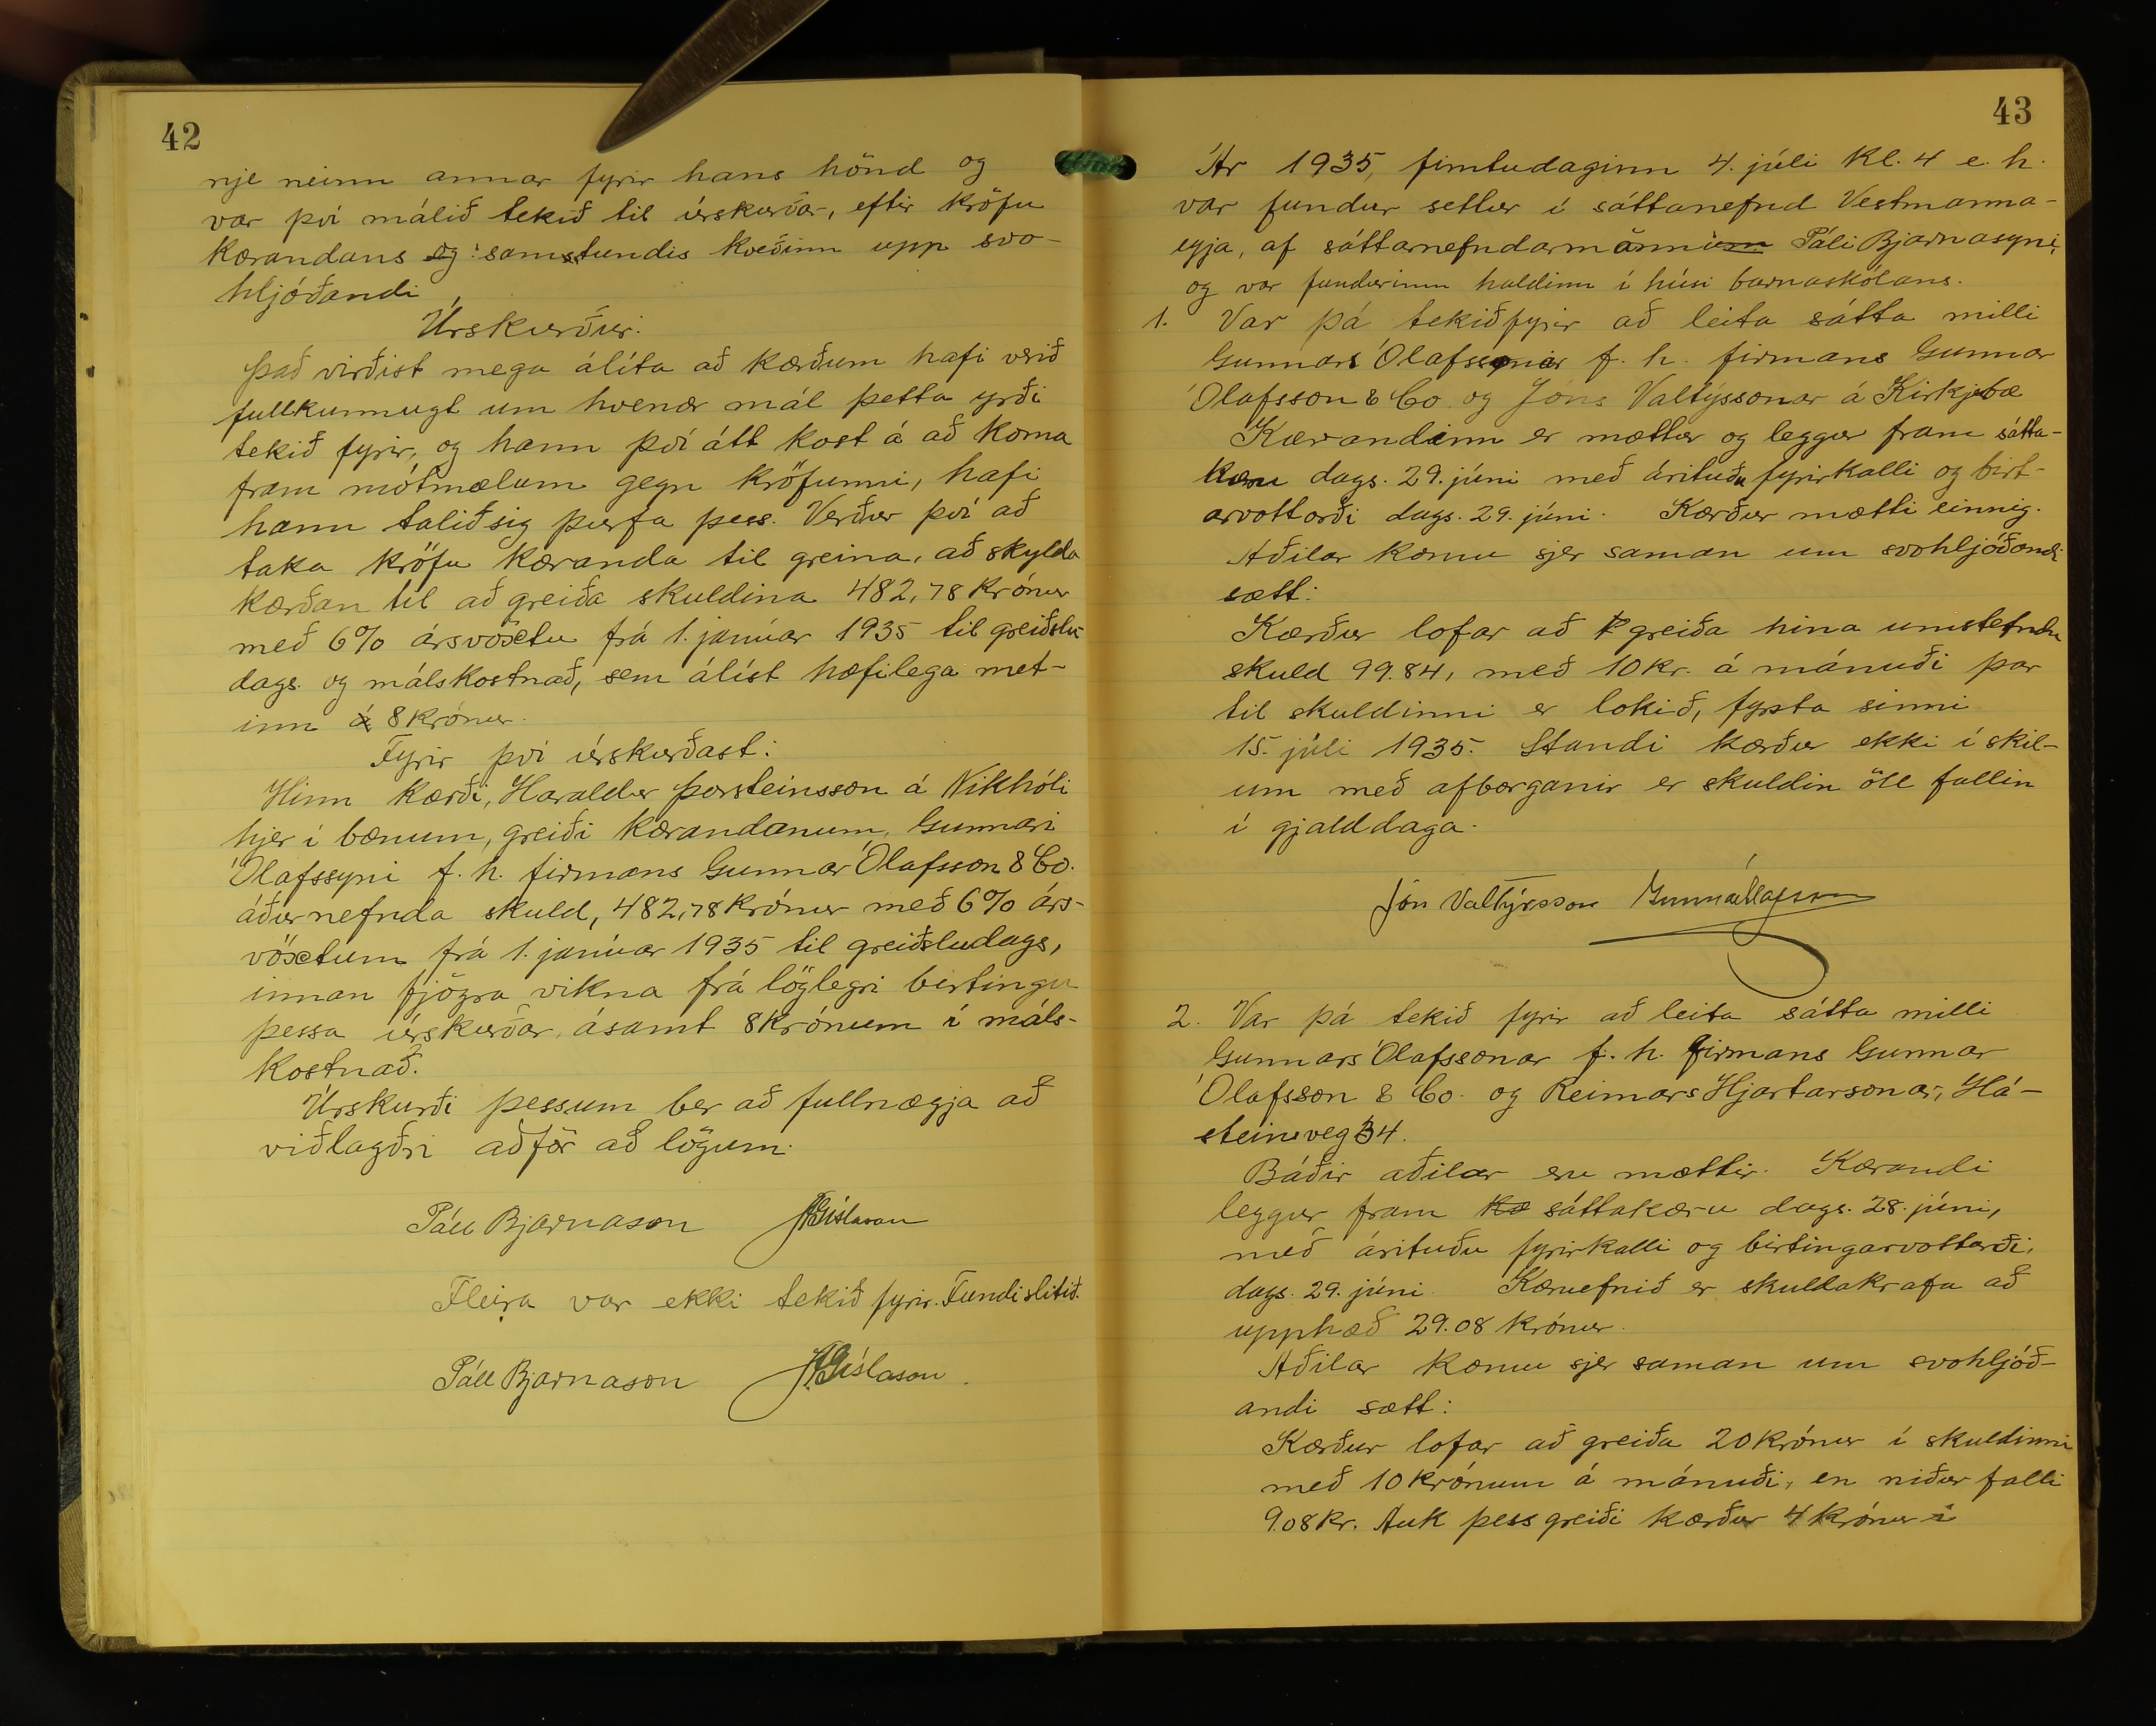 42
nje neinn annar fyrir hans hönd og
var því málið tekið til úrskurðar, eftir kröfu
kærandans og samstundis kveðinn upp svo-
hljóðandi
Úrskurður.
Það virðist mega álíta að kærðum hafi verið
fullkunnugt um hvenær mál þetta yrði
tekið fyrir, og hann því átt kost á að koma
fram mótmælum gegn kröfunni, hafi
hann talið sig þurfa þess. Verður því að
taka kröfu kæranda til greina, að skylda
kærðan til að greiða skuldina 482,78 krónur
með 6% ársvöxtu frá 1. janúar 1935 til greiðslu-
dags. og málskostnað, sem álíst hæfilega met-
inn á 8 krónur.
Fyrir því úrskurðast:
Hinn kærði, Haraldur Þorsteinsson á Nikhóli
hjer í bænum, greiði kærandanum, Gunnari
Ólafssyni f. h. firmans Gunnar Ólafsson & Co.
áðurnefnda skuld, 482,78 krónur með 6% árs-
vöxtum frá 1. janúar 1935 til greiðsludags,
innan fjögra vikna frá löglegri birtingu
þessa úrskurðar, ásamt 8 krónum í máls-
kostnað.
Úrskurði þessum ber að fullnægja að
viðlagðri aðför að lögum.
Páll Bjarnason JGíslason
Fleira var ekki tekið fyrir. Fundi slitið.
Páll Bjarnason JGíslason.
43
Ár 1935, fimtudaginn 4. júli kl. 4 e. h.
var fundur settur í sáttanefnd Vestmanna-
eyja, af sáttarnefndarmönnum Páli Bjarnasyni,
og var fundurinn haldinn í húsi barnaskólans.
1. Var þá tekið fyrir að leita sátta milli
Gunnars Ólafssonar f. h. firmans Gunnar
Ólafsson & Co. og Jóns Valtýssonar á Kirkjubæ
Kærandinn er mættur og leggur fram sátta-
kæru dags. 29. júni með árituðu fyrirkalli og birt-
arvottorði dags. 29. júni. Kærður mætti einnig.
Aðilar komu sjer saman um svohljóðandi
sætt:
Kærður lofar að greiða hina umstefndu
skuld 99.84, með 10 kr. á mánuði þar
til skuldinni er lokið, fyrsta sinni
15. júli 1935. Standi kærður ekki í skil-
um með afborganir er skuldin öll fallin
í gjalddaga.
Jón Valtýsson Gunnar Ólafsson
2. Var þá tekið fyrir að leita sátta milli
Gunnars Ólafssonar f. h. firmans Gunnar
Ólafsson & Co. og Reimars Hjartarsonar, Há-
steinsveg 34.
Báðir aðilar eru mættir. Kærandi
leggur fram kæ sáttakæru dags. 28. júni,
með árituðu fyrirkalli og birtingarvottorði,
dags. 29. júni. Kæruefnið er skuldakrafa að
upphæð 29.08 krónur.
Aðilar komu sjer saman um svohljóð-
andi sætt:
Kærður lofar að greiða 20 krónur í skuldinni
með 10 krónum á mánuði, en niður falli
9.08 kr. Auk þess greiði kærður 4 krónur í